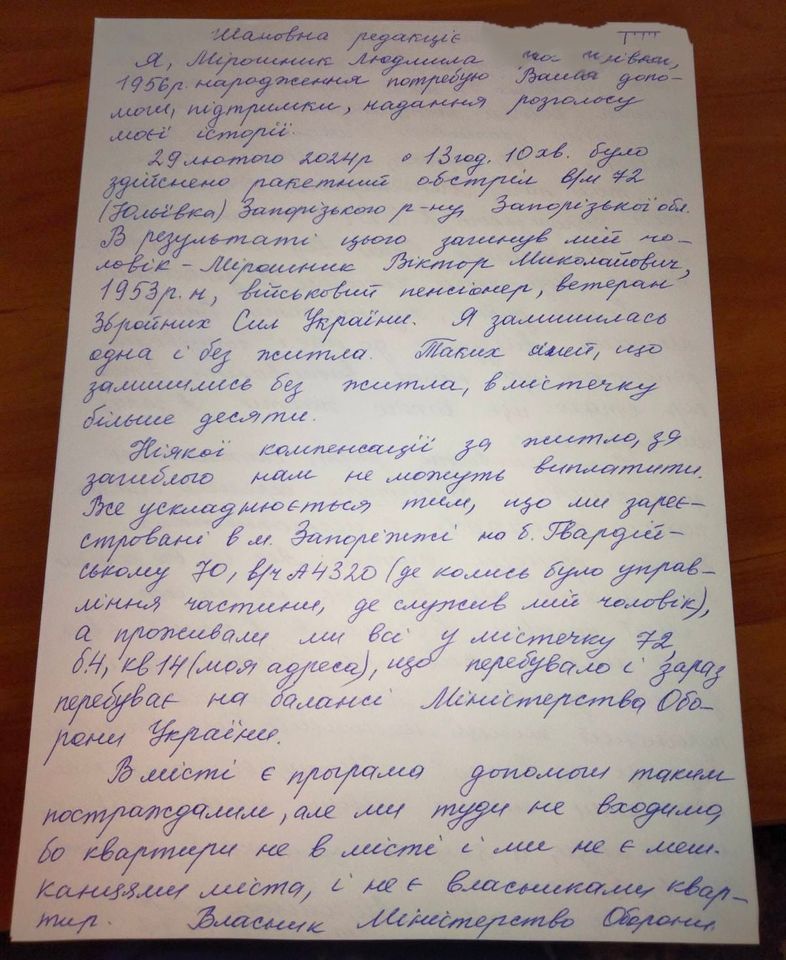 Шановна редакціє
Я, Мірошник Людмила
1956р. народження потребую Вашої допо-
моги, підтримки, надання розголосу
моєї історії.
29 лютого 2024р о 13 год. 10 хв. було
здійснено ракетний обстріл в/м 72
(Юльївка) Запорізького р-ну, Запорізької обл.
В результаті цього загинув мій чо-
ловік - Мірошник Віктор Миколайович,
1953р.н, військовий пенсіонер, ветеран
Збройних Сил України. Я залишилась
одна і без житла. Таких сімей, що
залишились без житла, в містечку
більше десяти.
Ніякої компенсації за житло, за
загиблого нам не можуть виплатити.
Все ускладнюється тим, що ми зареє-
стровані в м. Запоріжжі на б. Гвардій-
ському 70, в/ч А4320 (де колись було управ-
ління частини, де служив мій чоловік),
а проживали ми всі у містечку 72,
б4, кв 14 (моя адреса), що перебувало і зараз
перебуває на балансі Міністерства Обо-
рони України.
В місті є програма допомоги таким
постраждалим, але ми туди не входимо,
бо квартири не в місті і ми не є меш-
канцями міста, і не є власниками квар-
тир. Власник Міністерство Оборони